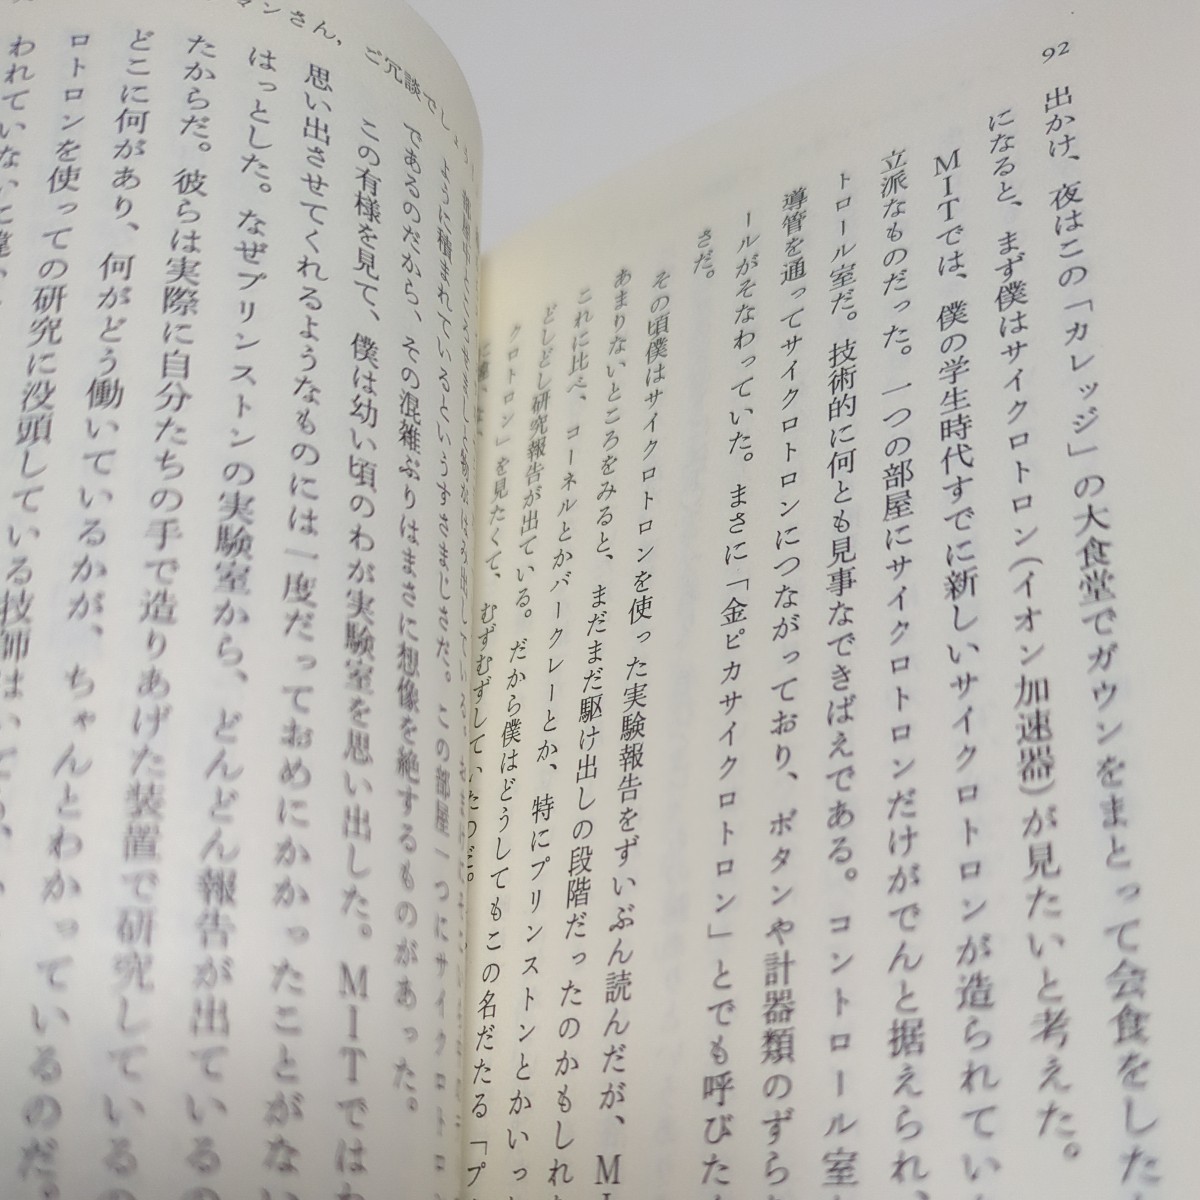 92
出かけ、夜はこの「カレッジ」の大食堂でガウンをまとって会食をした
になると、まず僕はサイクロトロン(イオン加速器)が見たいと考えた。
MITでは、僕の学生時代すでに新しいサイクロトロンが造られてい
立派なものだった。一つの部屋にサイクロトロンだけがでんと据えられ、
トロール室だ。技術的に何とも見事なできばえである。コントロール室
導管を通ってサイクロトロンにつながっており、ボタンや計器類のずら
ールがそなわっていた。まさに「金ピカサイクロトロン」とでも呼びた
さだ。
その頃僕はサイクロトロンを使った実験報告をずいぶん読んだが、MI
あまりないところをみると、まだまだ駆け出しの段階だったのかもしれ
これに比べ、コーネルとかバークレーとか、特にプリンストンとかいっ
どしどし研究報告が出ている。だから僕はどうしてもこの名だたる「プ
クロトロン」を見たくて、むずむずしていたのだ。
マンさん、ご冗談でしょう
ように積まれているというすさまじさだ。この部屋一つにサイクロトロン
であるのだから、その混雑ぶりはまさに想像を絶するものがあった。
この有様を見て、僕は幼い頃のわが実験室を思い出した。MITではわ
思い出させてくれるようなものには一度だっておめにかかったことがな
はっとした。なぜプリンストンの実験室から、どんどん報告が出ている
たからだ。彼らは実際に自分たちの手で造りあげた装置で研究している
どこに何があり、何がどう働いているかが、ちゃんとわかっているのだ。
ロトロンを使っての研究に没頭している技師は
われていないに違い